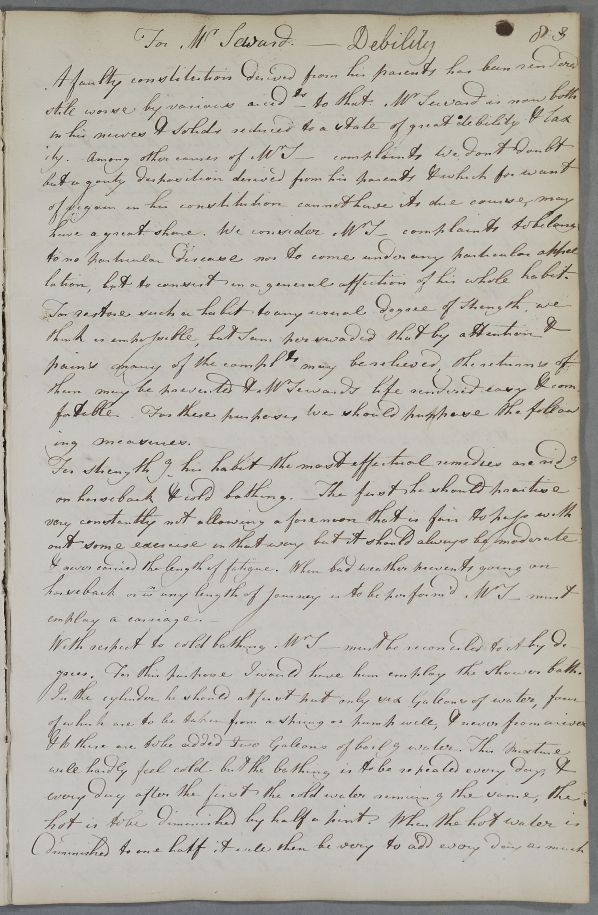 For Mr Seward. — Debility 83
A faulty constitution derived from his parents has been rendered
still worse by various accidts — to that Mr Seward is now both
in his nerves & solids reduced to a state of great debility & lax
ity. Among other causes of Mr S — complaints we dont doubt
but a gouty disposition derived from his parents & which for want
of vigour in his constitution cannot have its due course, may
have a great share. We consider Mr S — complaints to belong
to no particular disease nor to come under any particular appel
lation, but to consist in a general affection of his whole habit.
To restore such a habit to any usual degree of strength, we
think is impossible, but I am perswaded that by attention &
pains many of the complts may be relieved, the returns of
them may be prevented & Mr Sewards life rendered easy & com
fortable. For these purposes we should suppose the follow
ing measures.
For strengthg his habit the most effectual remedies are ridg
on horseback & cold bathing. — The first he should practise
very constantly not allowing a forenoon that is fair to pass with
out some exercise in that way but it should always be moderate
& never carried the length of fatigue. When bad weather prevents going on
horseback or wn any length of journey is to be perform'd Mr S — must
employ a carriage. —
With respect to cold bathing Mr S — must be reconciled to it by de
grees. For this purpose I would have him employ the shower bath.
In the cylinder he should at first put only six Galeons of water, four
of which are to be taken from a spring or pump well, & never from a river
& to these are to be added two Galeons of boilg water. This mixture
will hardly feel cold but the bathing is to be repeated every day, &
every day after the first the cold water remaing the same, the
hot is to be diminished by half a pint. When the hot water is
diminished to one half it will then be very to add every day as much